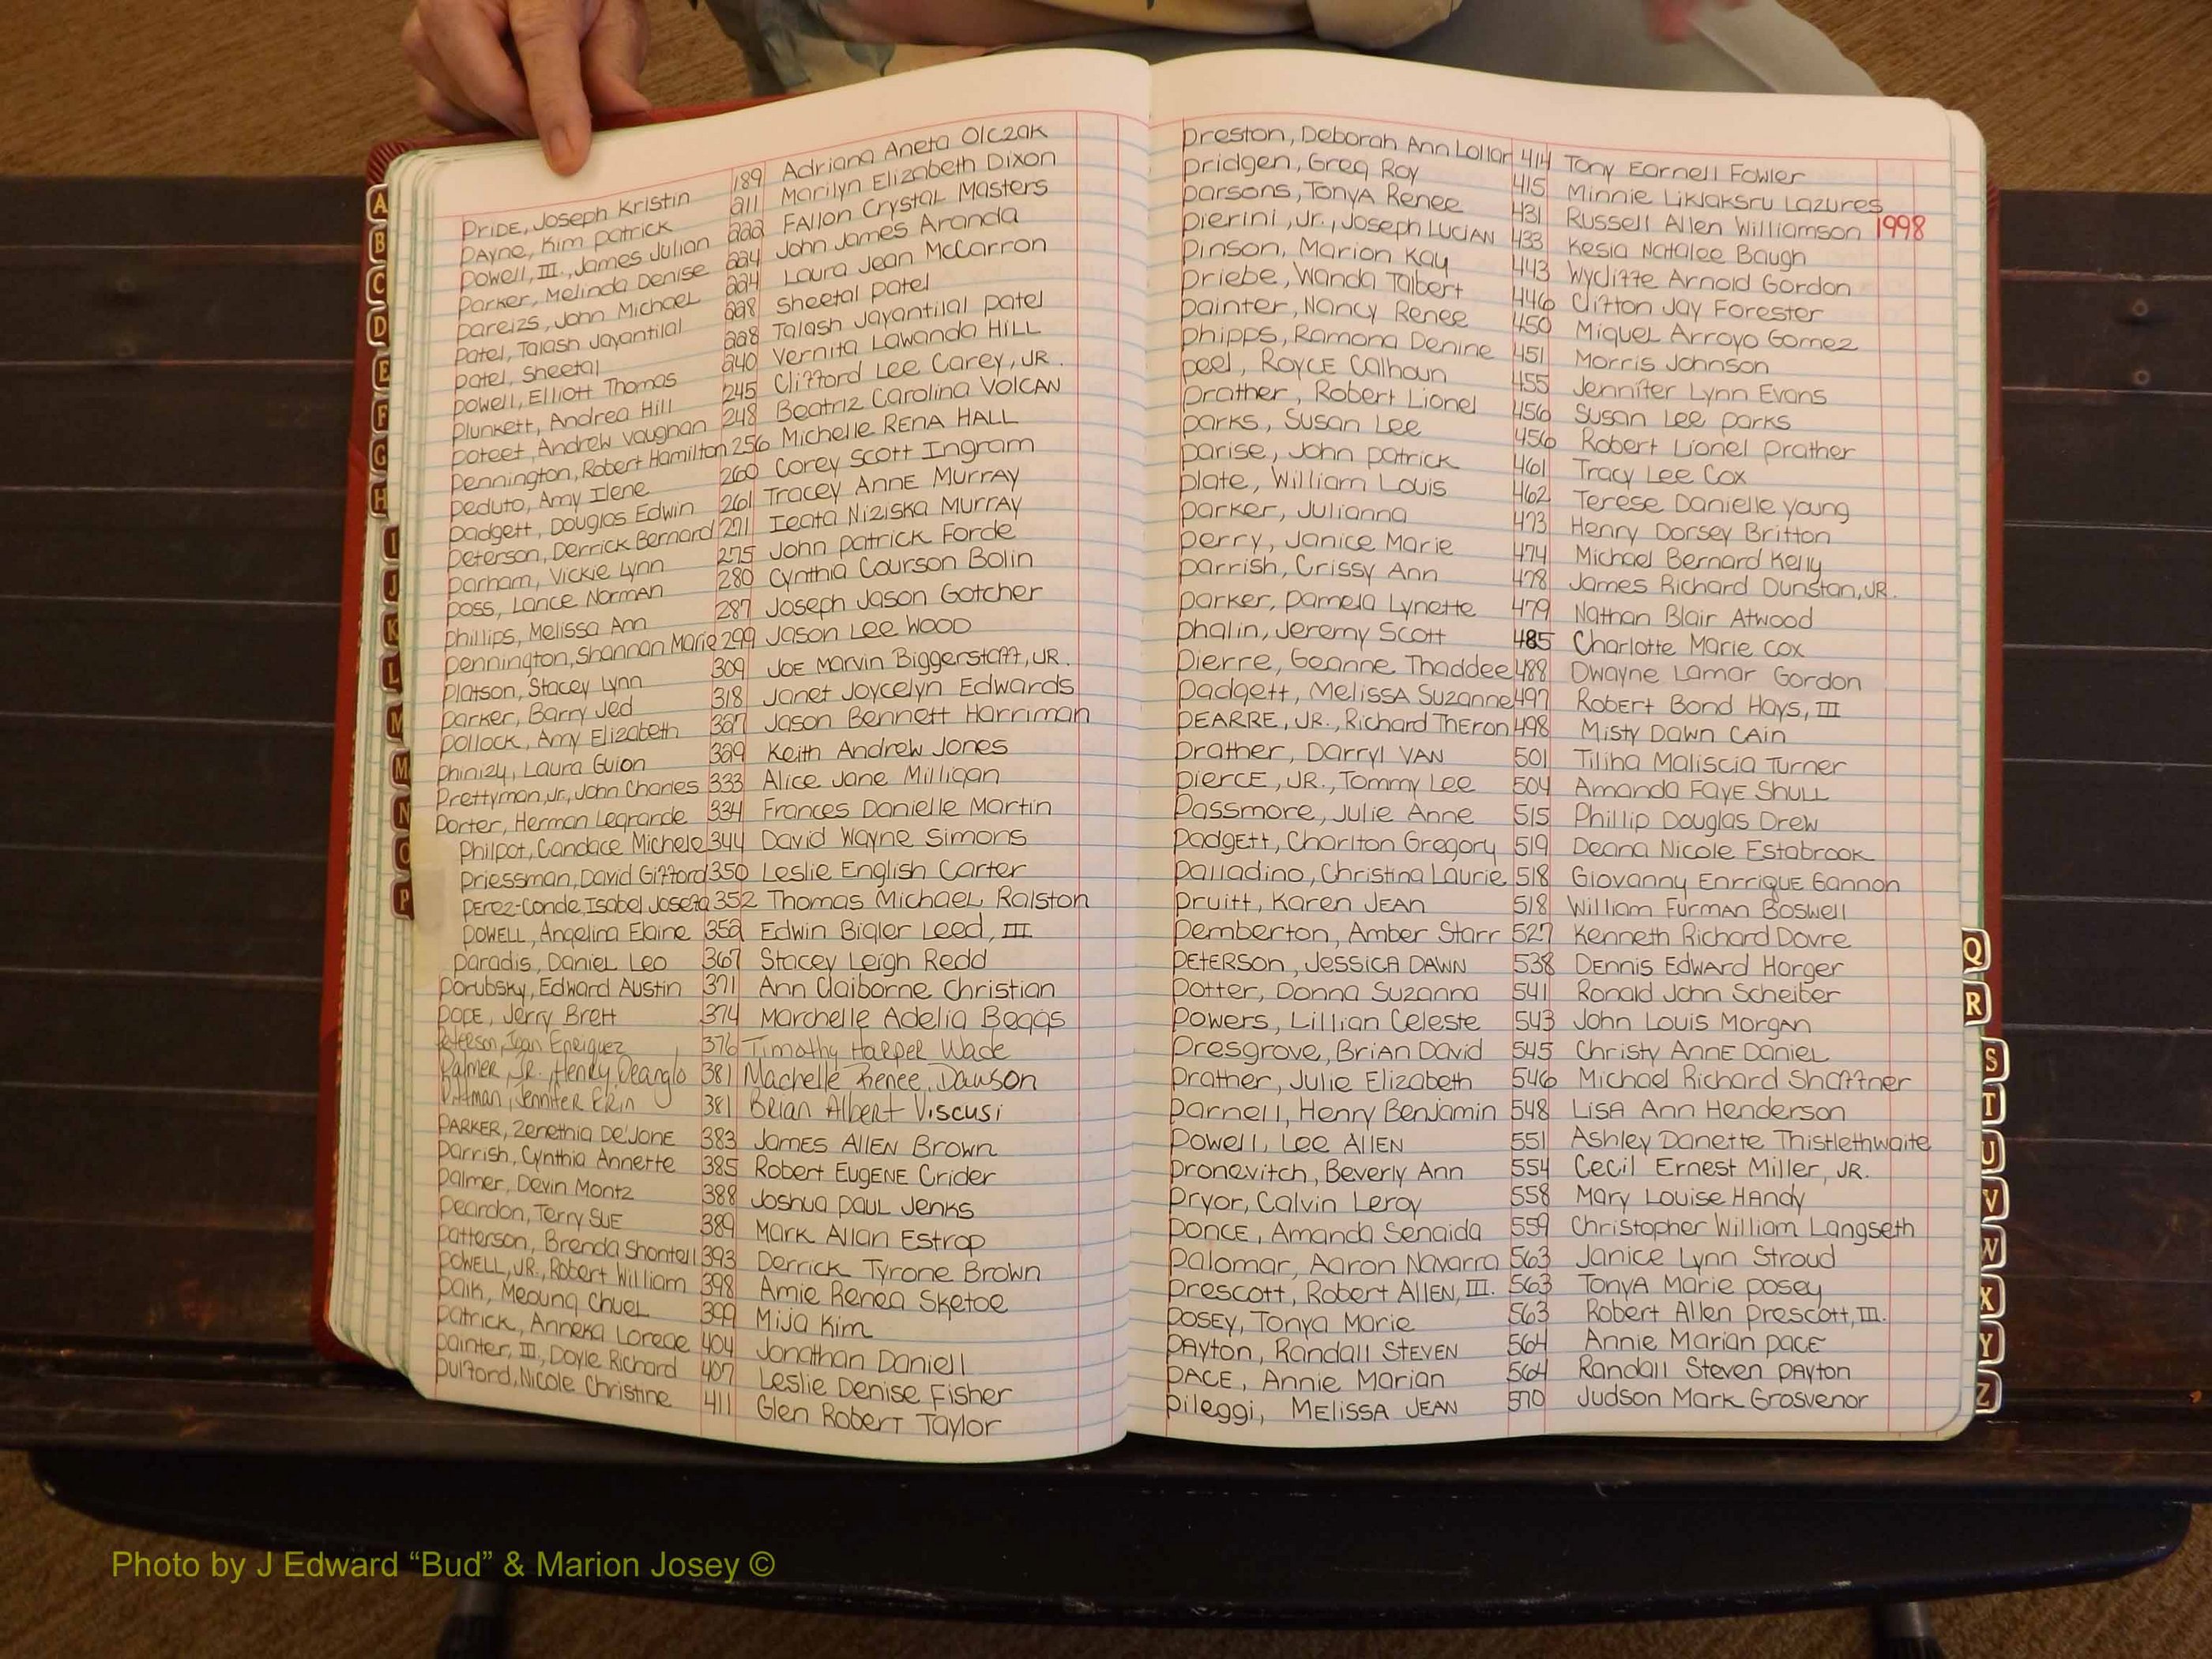 Pride, Joseph Kristin 189 Adriana Aneta Olczak
Payne, Kim Patrick 211 Marilyn Elizabeth Dixon
Powell, III., James Julian 222 Fallon Crystal Masters
Parker, Melinda Denise 224 John James Aranda
Pareizs, John Michael 224 Laura Jean McCarron
Patel, Talash Jayantilal 228 Sheetal Patel
Patel, Sheetal 228 Talash Jayantilal Patel
Powell, Elliott Thomas 240 Vernita Lawanda Hill
Plunkett, Andrea Hill 245 Clifford Lee Carey, JR.
Poteet, Andrew Vaughan 248 Beatriz Carolina Volcan
Pennington, Robert Hamilton 256 Michelle Rena Hall
Peduto, Amy Ilene 260 Corey Scott Ingram
Padgett, Douglas Edwin 261 Tracey Anne Murray
Peterson, Derrick Bernard 271 Ieata Niziska Murray
Parham, Vickie Lynn 275 John Patrick Forde
Poss, Lance Norman 280 Cynthia Courson Bolin
Phillips, Melissa Ann 287 Joseph Jason Gotcher
Pennington, Shannan Marie 299 Jason Lee Wood
Platson, Stacey Lynn 309 Joe Marvin Biggerstaff, JR.
Parker, Barry Jed 318 Janet Joycelyn Edwards
Pollock, Amy Elizabeth 327 Jason Bennett Harriman
Phinizy, Laura Guion 329 Keith Andrew Jones
Prettyman, Jr., John Charles 333 Alice Jane Milligan
Porter, Herman Legrande 334 Frances Danielle Martin
Philpot, Candace Michele 344 David Wayne Simons
Priessman, David Gifford 350 Leslie English Carter
Perez-Conde, Isabel Josefa 352 Thomas Michael Ralston
Powell, Angelina Elaine 352 Edwin Bigler Leed, III
Paradis, Daniel Leo 367 Stacey Leigh Redd
Porubsky, Edward Austin 371 Ann Claiborne Christian
Pope, Jerry Brett 374 Marchelle Adelia Beggs
Peterson, Jean Enriquez 376 Timothy Harper Wade
Palmer, Jr. Henry Deanglo 381 Machelle Renee Dawson
Pittman, Jennifer Erin 381 Brian Albert Viscusi
Parker, Zenethia De'Jone 383 James Allen Brown
Parrish, Cynthia Annette 385 Robert Eugene Crider
Palmer, Devin Montz 388 Joshua Paul Jenks
Peardon, Terry Sue 389 Mark Allan Estrop
Patterson, Brenda Shontell 393 Derrick Tyrone Brown
Powell, JR., Robert William 398 Amie Renea Sketoe
Paik, Meoung Chuel 399 Mija Kim
Patrick, Anneka Lorece 404 Jonathan Daniell
Painter, III, Doyle Richard 407 Leslie Denise Fisher
Pulford, Nicole Christine 411 Glen Robert Taylor
Preston, Deborah Ann Lollar 414 Tony Earnell Fowler
Pridgen, Greg Roy 415 Minnie Liklaksru Lazures
Parsons, Tonya Renee 431 Russell Allen Williamson 1998
Pierini, Jr., Joseph Lucian 433 Kesia Natalee Baugh
Pinson, Marion Kay 443 Wycliffe Arnold Gordon
Priebe, Wanda Talbert 446 Clifton Jay Forester
Painter, Nancy Renee 450 Miguel Arroyo Gomez
Phipps, Ramona Denine 451 Morris Johnson
Peel, Royce Calhoun 455 Jennifer Lynn Evans
Prather, Robert Lionel 456 Susan Lee Parks
Parks, Susan Lee 456 Robert Lionel Prather
Parise, John Patrick 461 Tracy Lee Cox
Plate, William Louis 462 Terese Danielle Young
Parker, Julianna 473 Henry Dorsey Britton
Perry, Janice Marie 474 Michael Bernard Kelly
Parrish, Crissy Ann 478 James Richard Dunstan, JR.
Parker, Pamela Lynette 479 Nathan Blair Atwood
Phalin, Jeremy Scott 485 Charlotte Marie Cox
Pierre, Geanne Thaddee 488 Dwayne Lamar Gordon
Padgett, Melissa Suzanne 497 Robert Bond Hays, III
Pearre, JR., Richard Theron 498 Misty Dawn Cain
Prather, Darryl Van 501 Tiliha Maliscia Turner
Pierce, JR., Tommy Lee 504 Amanda Faye Shull
Passmore, Julie Anne 515 Phillip Douglas Drew
Padgett, Charlton Gregory 519 Deana Nicole Estabrook
Palladino, Christina Laurie 518 Giovanny Enrrique Gannon
Pruitt, Karen Jean 518 William Furman Boswell
Pemberton, Amber Starr 527 Kenneth Richard Dovre
Peterson, Jessica Dawn 538 Dennis Edward Horger
Potter, Donna Suzanna 541 Ronald John Scheiber
Powers, Lillian Celeste 543 John Louis Morgan
Presgrove, Brian David 545 Christy Anne Daniel
Prather, Julie Elizabeth 546 Michael Richard Shaffner
Parnell, Henry Benjamin 548 Lisa Ann Henderson
Powell, Lee Allen 551 Ashley Danette Thistlethwaite
Pronevitch, Beverly Ann 554 Cecil Ernest Miller, JR.
Pryor, Calvin Leroy 558 Mary Louise Handy
Ponce, Amanda Senaida 559 Christopher William Langseth
Palomar, Aaron Navarro 563 Janice Lynn Stroud
Prescott, Robert Allen, III. 563 Tonya Marie Posey
Posey, Tonya Marie 563 Robert Allen Prescott, III.
Payton, Randall Steven 564 Annie Marian Pace
Pace, Annie Marian 564 Randall Steven Payton
Pileggi, Melissa Jean 570 Judson Mark Grosvenor
A
B
C
D
E
F
G
H
I
J
K
L
M
M
N
O
P
Q
R
S
T
U
V
W
X
Y
Z
Photo by J Edward “Bud” & Marion Josey ©